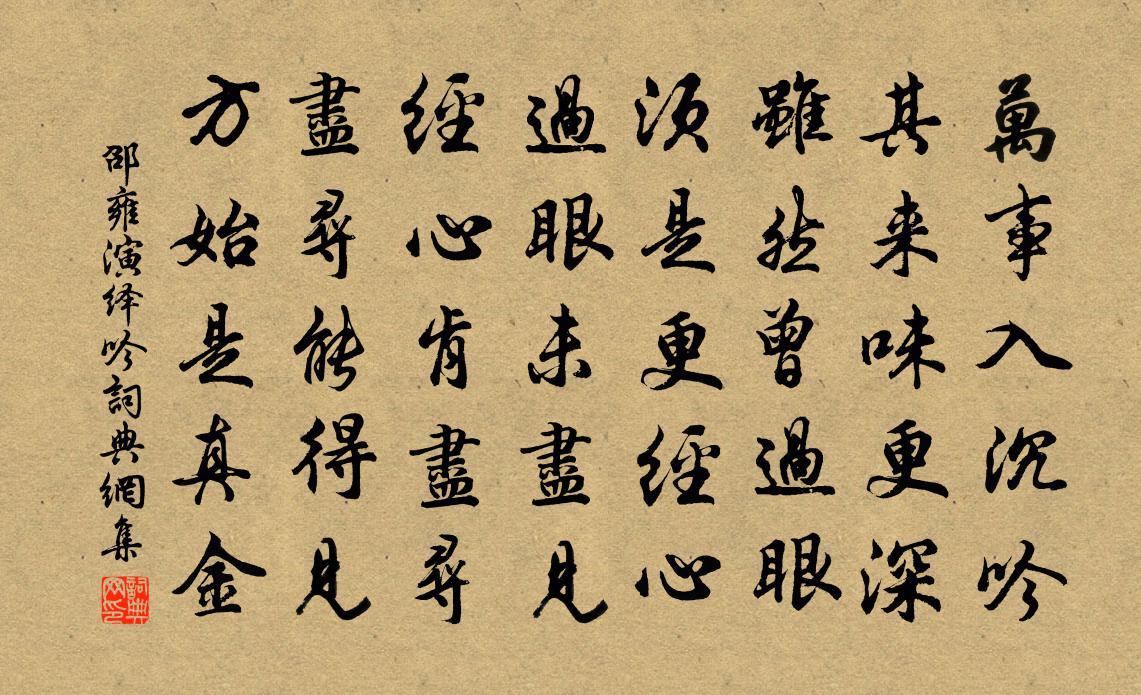 萬事入沉吟
其来味更深
雖然曾過眼
須是更經心
過眼未盡見
經心肯盡尋
盡尋能得見
方始是真金
邵雍演绎吟詞典網集
詞典網印